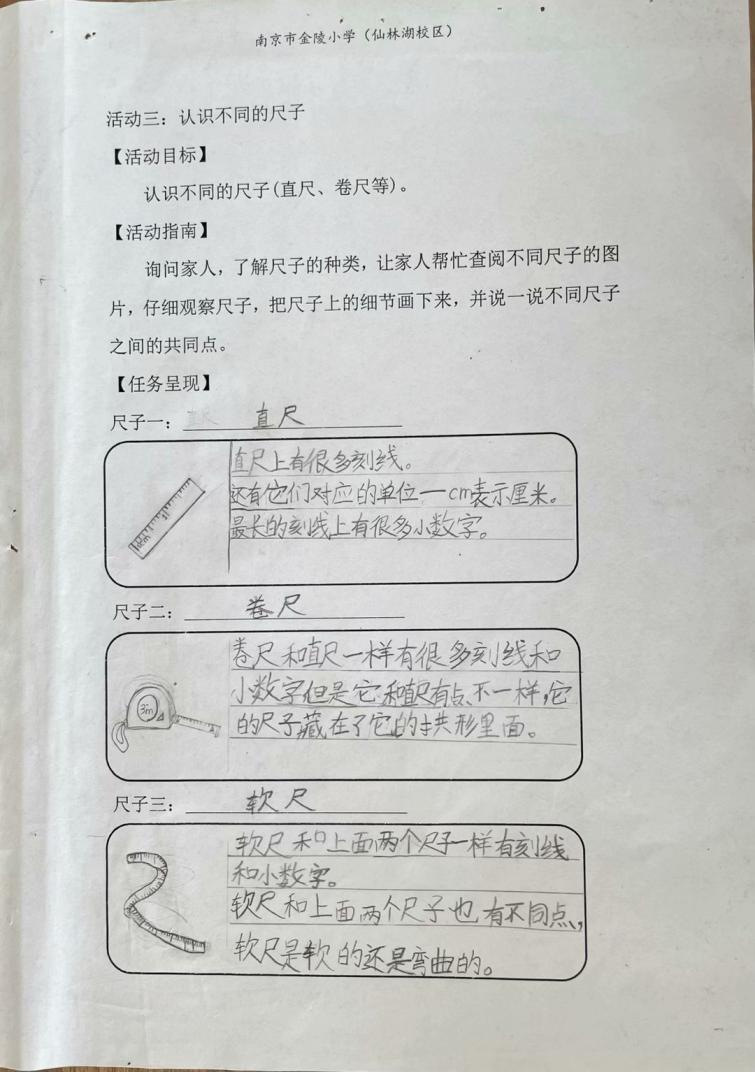 南京市金陵小学（仙林湖校区）
活动三：认识不同的尺子
【活动目标】
认识不同的尺子(直尺、卷尺等)。
【活动指南】
询问家人，了解尺子的种类，让家人帮忙查阅不同尺子的图
片，仔细观察尺子，把尺子上的细节画下来，并说一说不同尺子
之间的共同点。
【任务呈现】
尺子一： 直尺
直尺上有很多刻线。
还有它们对应的单位一cm表示厘米。
最长的刻线上有很多小数字。
尺子二： 卷尺
卷尺和直尺一样有很多刻线和
小数字但是它和直尺有点不一样，它
3m
的尺子藏在了它的拱形里面。
尺子三： 软尺
软尺和上面两个尺子一样有刻线
和小数字。
软尺和上面两个尺子也有不同点，
软尺是软的还是弯曲的。